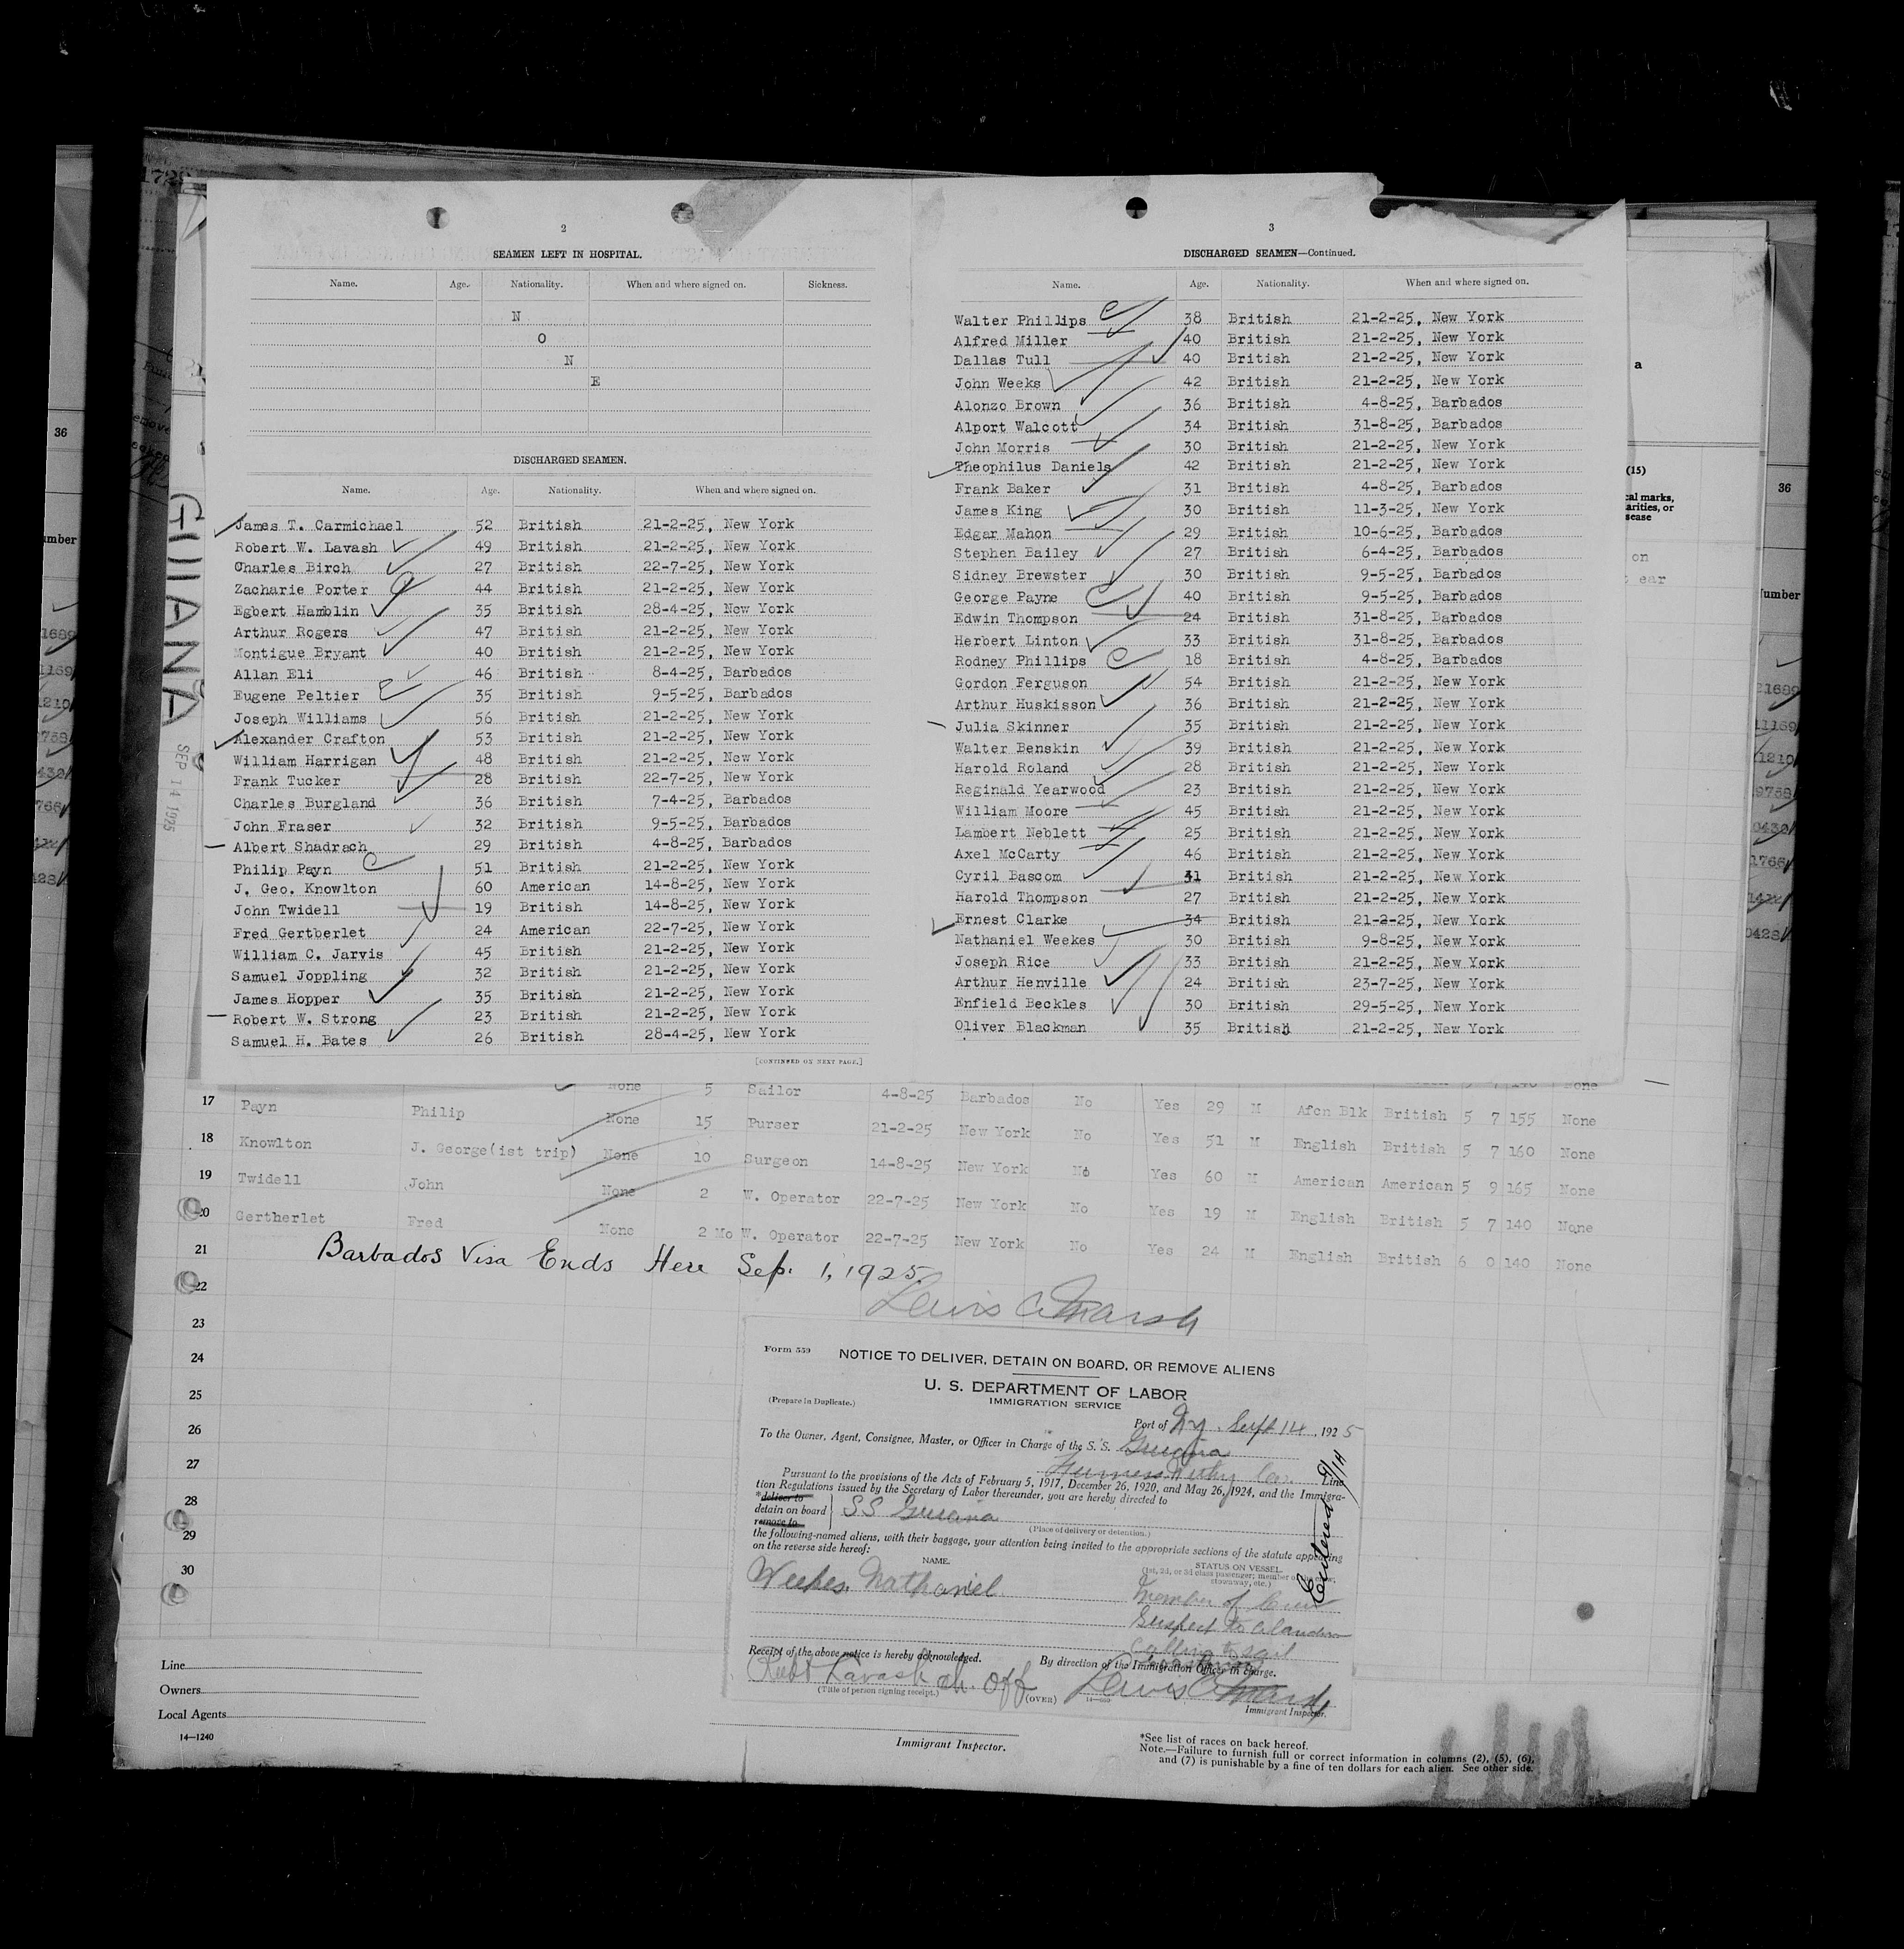 2
SEAMEN LEFT IN HOSPITAL.
Name. Age. Nationality. When and where signed on. Sickness.
N
O
N
E
DISCHARGED SEAMEN.
Name. Age. Nationality. When and where signed on.
James T. Carmichael 52 British 21-2-25, New York
Robert W. Lavash 49 British 21-2-25, New York
Charles Birch 27 British 22-7-25, New York
Zacharie Porter 44 British 21-2-25, New York
Egbert Hamblin 35 British 28-4-25, New York
Arthur Rogers 47 British 21-2-25, New York
Montigue Bryant 40 British 21-2-25, New York
Allan Eli 46 British 8-4-25, Barbados
Eugene Peltier 35 British 9-5-25, Barbados
Joseph Williams 56 British 21-2-25, New York
Alexander Crafton 53 British 21-2-25, New York
William Harrigan 48 British 21-2-25, New York
Frank Tucker 28 British 22-7-25, New York
Charles Burgland 36 British 7-4-25, Barbados
John Fraser 32 British 9-5-25, Barbados
Albert Shadrach 29 British 4-8-25, Barbados
Philip Payn 51 British 21-2-25, New York
J. Geo. Knowlton 60 American 14-8-25, New York
John Twidell 19 British 14-8-25, New York
Fred Gertberlet 24 American 22-7-25, New York
William C. Jarvis 45 British 21-2-25, New York
Samuel Joppling 32 British 21-2-25, New York
James Hopper 35 British 21-2-25, New York
Robert W. Strong 23 British 21-2-25, New York
Samuel H. Bates 26 British 28-4-25, New York
[CONTINUED ON NEXT PAGE.]
3
DISCHARGED SEAMEN—Continued.
Name. Age. Nationality. When and where signed on.
Walter Phillips 38 British 21-2-25, New York
Alfred Miller 40 British 21-2-25, New York
Dallas Tull 40 British 21-2-25, New York
John Weeks 42 British 21-2-25, New York
Alonzo Brown 36 British 4-8-25, Barbados
Alport Walcott 34 British 31-8-25, Barbados
John Morris 30 British 21-2-25, New York
Theophilus Daniels 42 British 21-2-25, New York
Frank Baker 31 British 4-8-25, Barbados
James King 30 British 11-3-25, New York
Edgar Mahon 29 British 10-6-25, Barbados
Stephen Bailey 27 British 6-4-25, Barbados
Sidney Brewster 30 British 9-5-25, Barbados
George Payne 40 British 9-5-25, Barbados
Edwin Thompson 24 British 31-8-25, Barbados
Herbert Linton 33 British 31-8-25, Barbados
Rodney Phillips 18 British 4-8-25, Barbados
Gordon Ferguson 54 British 21-2-25, New York
Arthur Huskisson 36 British 21-2-25, New York
Julia Skinner 35 British 21-2-25, New York
Walter Benskin 39 British 21-2-25, New York
Harold Roland 28 British 21-2-25, New York
Reginald Yearwood 23 British 21-2-25, New York
William Moore 45 British 21-2-25, New York
Lambert Neblett 25 British 21-2-25, New York
Axel McCarty 46 British 21-2-25, New York
Cyril Bascom 31 British 21-2-25, New York
Harold Thompson 27 British 21-2-25, New York
Ernest Clarke 34 British 21-2-25, New York
Nathaniel Weekes 30 British 9-8-25, New York
Joseph Rice 33 British 21-2-25, New York
Arthur Henville 24 British 23-7-25, New York
Enfield Beckles 30 British 29-5-25, New York
Oliver Blackman 35 British 21-2-25, New York
GUIANA
SEP 14 1925
36
36
a
(15)
on
ear
None 5 Sailor 4-8-25 Barbados No Yes 29 M Afcn Blk British 5 7 155 None
17 Payn Philip None 15 Purser 21-2-25 New York No Yes 51 M English British 5 7 160 None
18 Knowlton J. George(ist trip) None 10 Surgeon 14-8-25 New York No Yes 60 M American American 5 9 165 None
19 Twidell John None 2 W. Operator 22-7-25 New York No Yes 19 M English British 5 7 140 None
20 Gertherlet Fred None 2 Mo W. Operator 22-7-25 New York No Yes 24 M English British 6 0 140 None
21
Barbados Visa Ends Here Sep. 1, 1925.
22
Lewis C. Marsh
23
24
25
26
27
28
29
30
Form 559
NOTICE TO DELIVER, DETAIN ON BOARD, OR REMOVE ALIENS
U. S. DEPARTMENT OF LABOR
IMMIGRATION SERVICE
(Prepare in Duplicate.)
Port of Ny. Sept 14, 1925
To the Owner, Agent, Consignee, Master, or Officer in Charge of the S. S. Guiana
Furness Withy Co. Line
Pursuant to the provisions of the Acts of February 5, 1917, December 26, 1920, and May 26, 1924, and the Immigra-
tion Regulations issued by the Secretary of Labor thereunder, you are hereby directed to
*deliver to
detain on board
remove to
SS Guiana
(Place of delivery or detention.)
the following-named aliens, with their baggage, your attention being invited to the appropriate sections of the statute appearing
on the reverse side hereof:
NAME. STATUS ON VESSEL.
(1st, 2d, or 3d class passenger; member of the crew, stowaway, etc.)
Weekes, Nathaniel
Member of Crew
Suspect to abandon
calling to sail
Entered 9/14
Receipt of the above notice is hereby acknowledged.
By direction of the Immigration Officer in charge.
Robt Lavash ch. Off
(Title of person signing receipt.)
(OVER)
Lewis C. Marsh
Immigrant Inspector.
Line
Owners
Local Agents
14—1240
Immigrant Inspector.
*See list of races on back hereof.
Note.—Failure to furnish full or correct information in columns (2), (5), (6),
and (7) is punishable by a fine of ten dollars for each alien. See other side.